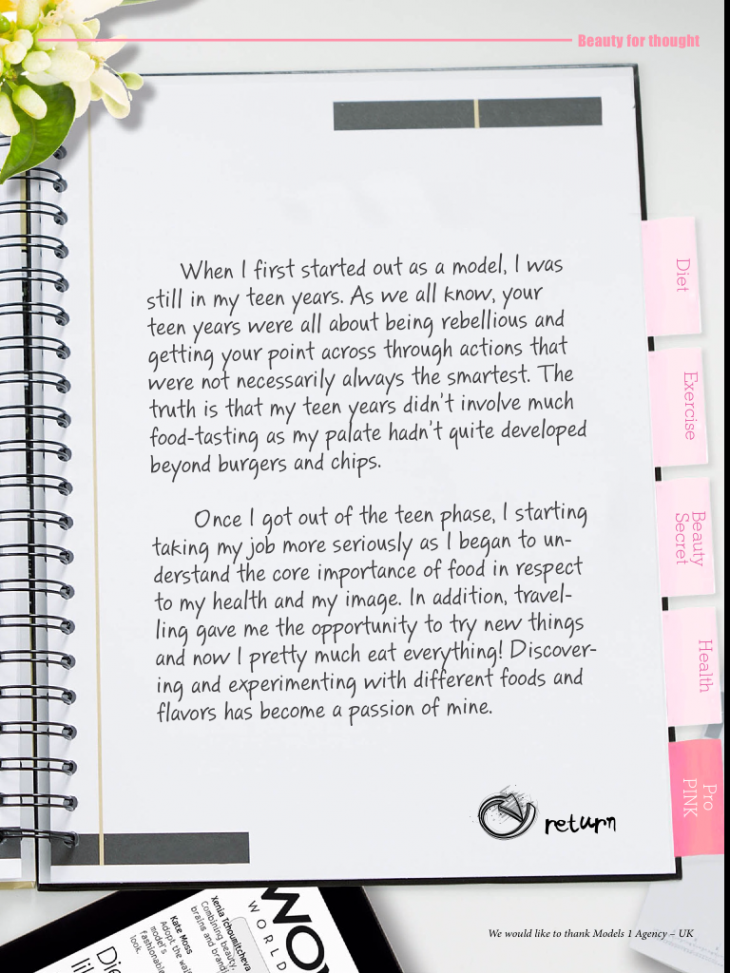 Beauty for thought
When I first started out as a model, I was
still in my teen years. As we all know, your
teen years were all about being rebellious and
getting your point across through actions that
were not necessarily always the smartest. The
truth is that my teen years didn't involve much
food-tasting as my palate hadn't quite developed
beyond burgers and chips.
Once I got out of the teen phase, I starting
taking my job more seriously as I began to un-
derstand the core importance of food in respect
to my health and my image. In addition, travel-
ling gave me the opportunity to try new things
and now I pretty much eat everything! Discover-
ing and experimenting with different foods and
flavors has become a passion of mine.
return
Diet
Exercise
Beauty
Secret
Health
Pro
PINK
WORLD
Xenia Tchoumitcheva
Combining beauty,
brains and
Kate Moss
Adopt the
model's
fashionable
look.
We would like to thank Models 1 Agency – UK